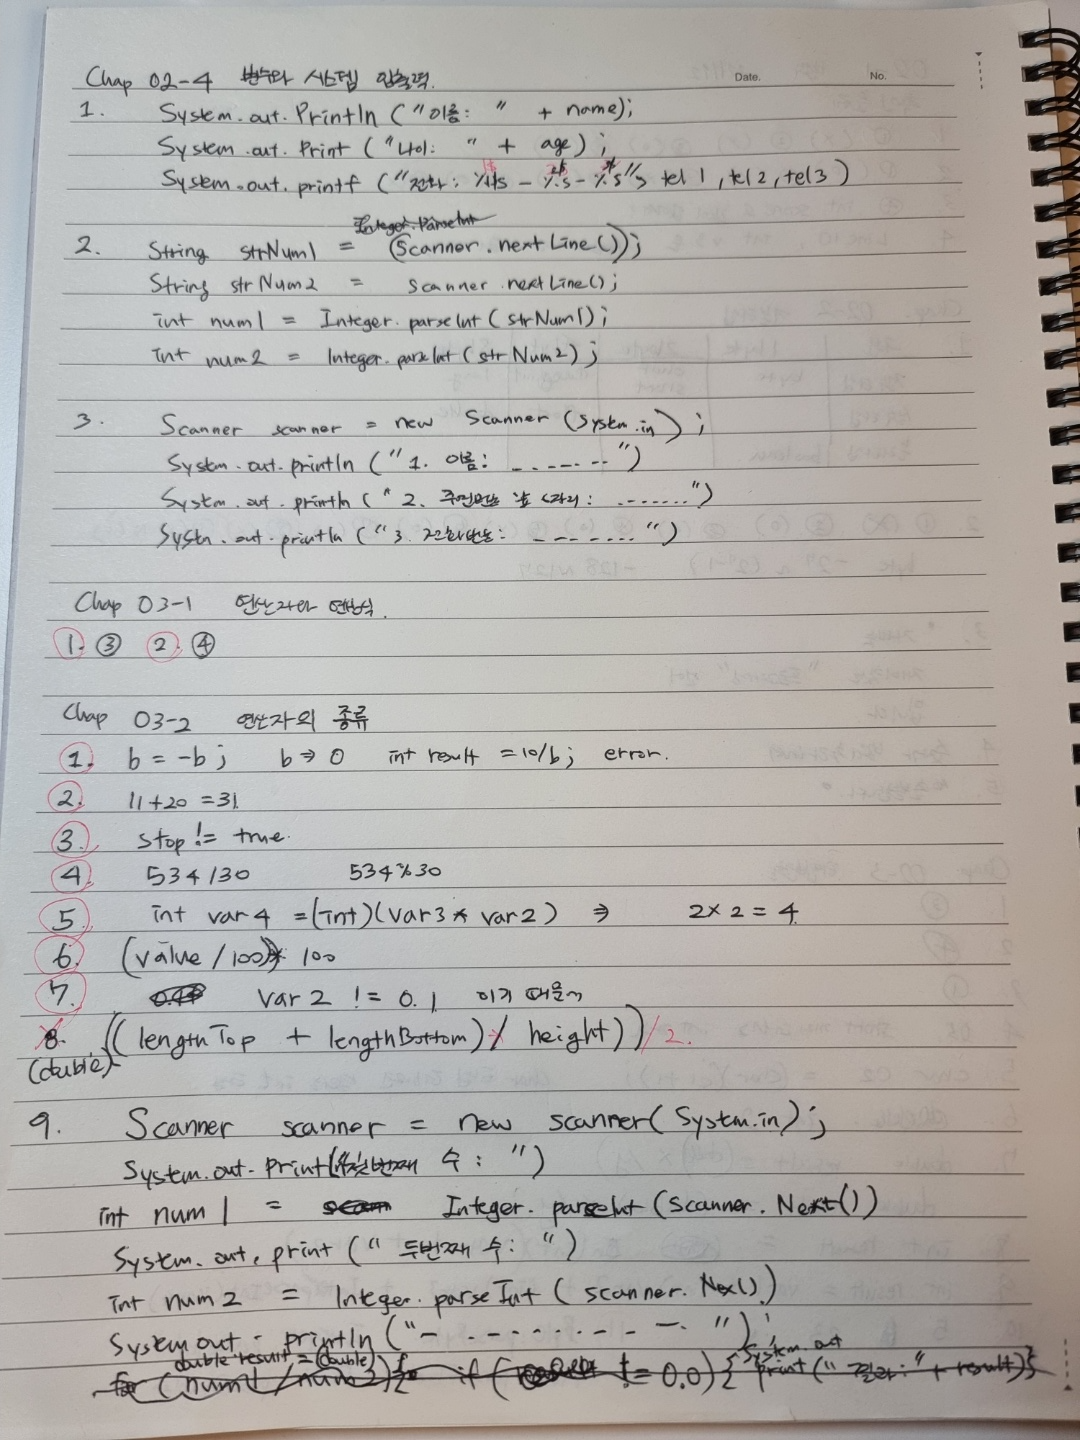 Chap 02-4 변수와 시스템 입출력.
Date. No.
1. System.out.Println ("이름: " + name);
System.out.Print ("나이: " + age);
System.out.printf ("전화: %1$s - %2$s - %3$s" tel 1, tel 2, tel 3)
2. String strNum1 = (Scanner.nextLine());
String strNum2 = scanner.nextLine();
int num1 = Integer.parseInt (strNum1);
int num2 = Integer.parseInt (strNum2);
3. Scanner scanner = new Scanner (System.in);
System.out.println ("1. 이름: ------")
System.out.println (" 2. 주민번호 앞 6자리: .......")
System.out.println ("3. 전화번호: -------")
Chap 03-1 연산자와 연산식.
1. ③ 2. ④
Chap 03-2 연산자의 종류
1. b = -b; b ⇒ 0 int result = 10/b; error.
2. 11+20 = 31.
3. stop != true.
4. 534/30 534%30
5. int var4 = (int)(var3 * var2) ⇒ 2×2 = 4.
6. (value /100)* 100
7. var2 != 0.1 이기 때문~
8. ((lengthTop + lengthBottom) * height))/2.
(double)
9. Scanner scanner = new scanner(System.in);
System.out.print("첫번째 수: ")
int num1 = Integer.parseInt (scanner.Next())
System.out.print (" 두번째 수: ")
int num2 = Integer.parseInt (scanner.Nex().)
System.out.println ("- - - - - - - - - -. ");
double result = (double) System.out
(num1 / num2) if ( != 0.0) { print (" 결과:" + result)};